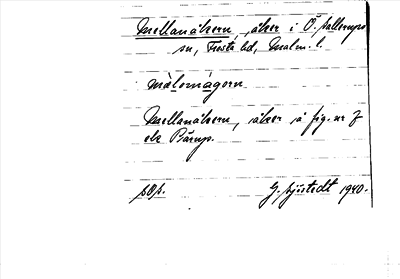 Mellanåkern, åker i Ö. Vallerups
sn, Frosta hd, Malm. l.
målomågorn
Mellanåkern, åker å fig. nr 7
och Pärup.
G. Sjöstedt 1940.